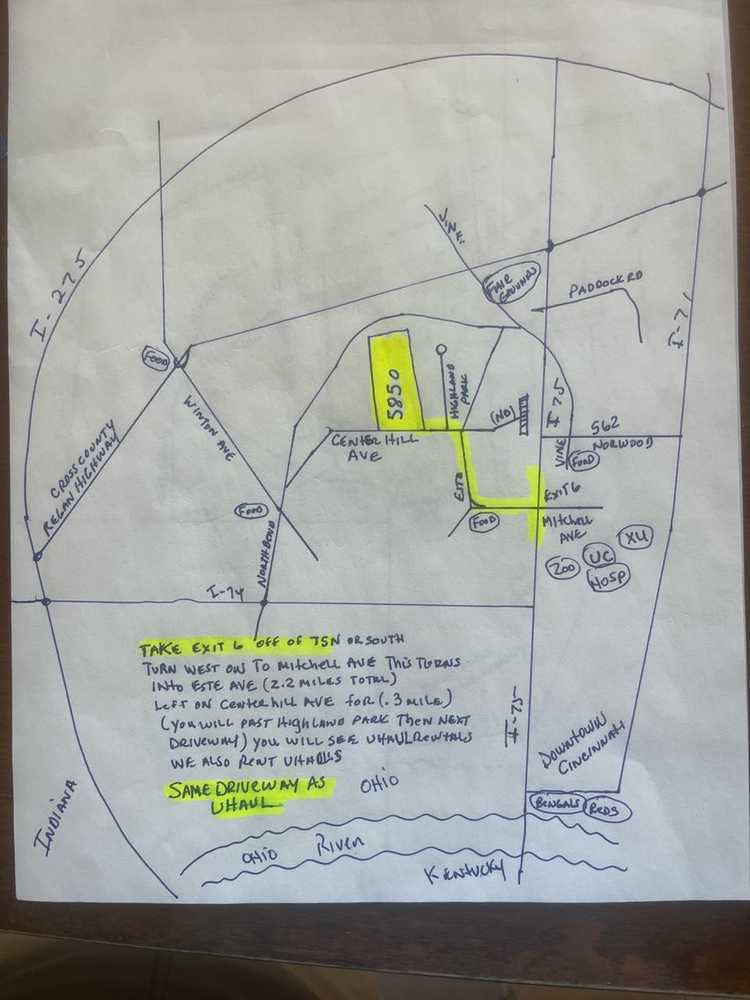 I-275
VINE
FAIR GROUNDS
PADDOCK RD
I-71
FOOD
5850
HIGHLAND PARK
WINTON AVE
CROSSCOUNTY
REGAN HIGHWAY
CENTER HILL
AVE
(NO)
I 75
562
NORWOOD
VINE
FOOD
ESTE
EXIT 6
FOOD
FOOD
MITCHELL
AVE
NORTHBEND
ZOO
UC
XU
HOSP
I-74
TAKE EXIT 6 OFF OF 75N OR SOUTH
TURN WEST ON TO MITCHELL AVE THIS TURNS
INTO ESTE AVE (2.2 MILES TOTAL)
LEFT ON CENTERHILL AVE FOR (.3 MILE)
(YOU WILL PAST HIGHLAND PARK THEN NEXT
DRIVEWAY) YOU WILL SEE UHAULRENTALS
WE ALSO RENT UHAULS
SAME DRIVEWAY AS
UHAUL
I-75
DOWNTOWN
CINCINNATI
OHIO
BENGALS
REDS
INDIANA
OHIO River
KENTUCKY